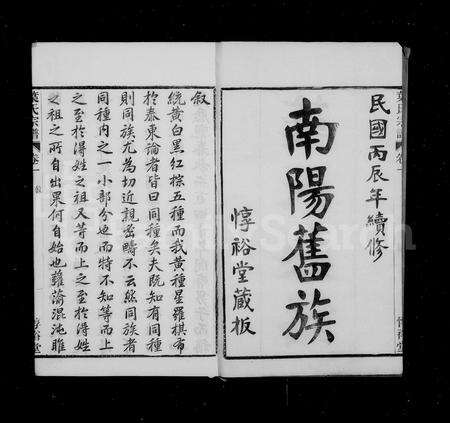 民國丙辰年續修
南陽舊族
惇裕堂藏板
葉氏宗譜
卷一
敘
統黃白黑紅棕五種而我黃種星羅棋布
於泰東論者皆曰同種矣夫既知有同種
則同族尤為切近親密疇不云然同族者
同種内之一小部分也而特不知等而上
之至於得姓之祖又等而上之至於得姓
之祖之所自出果何自始也雖渝混沌睢
葉氏宗譜
卷一
敘
惇裕堂